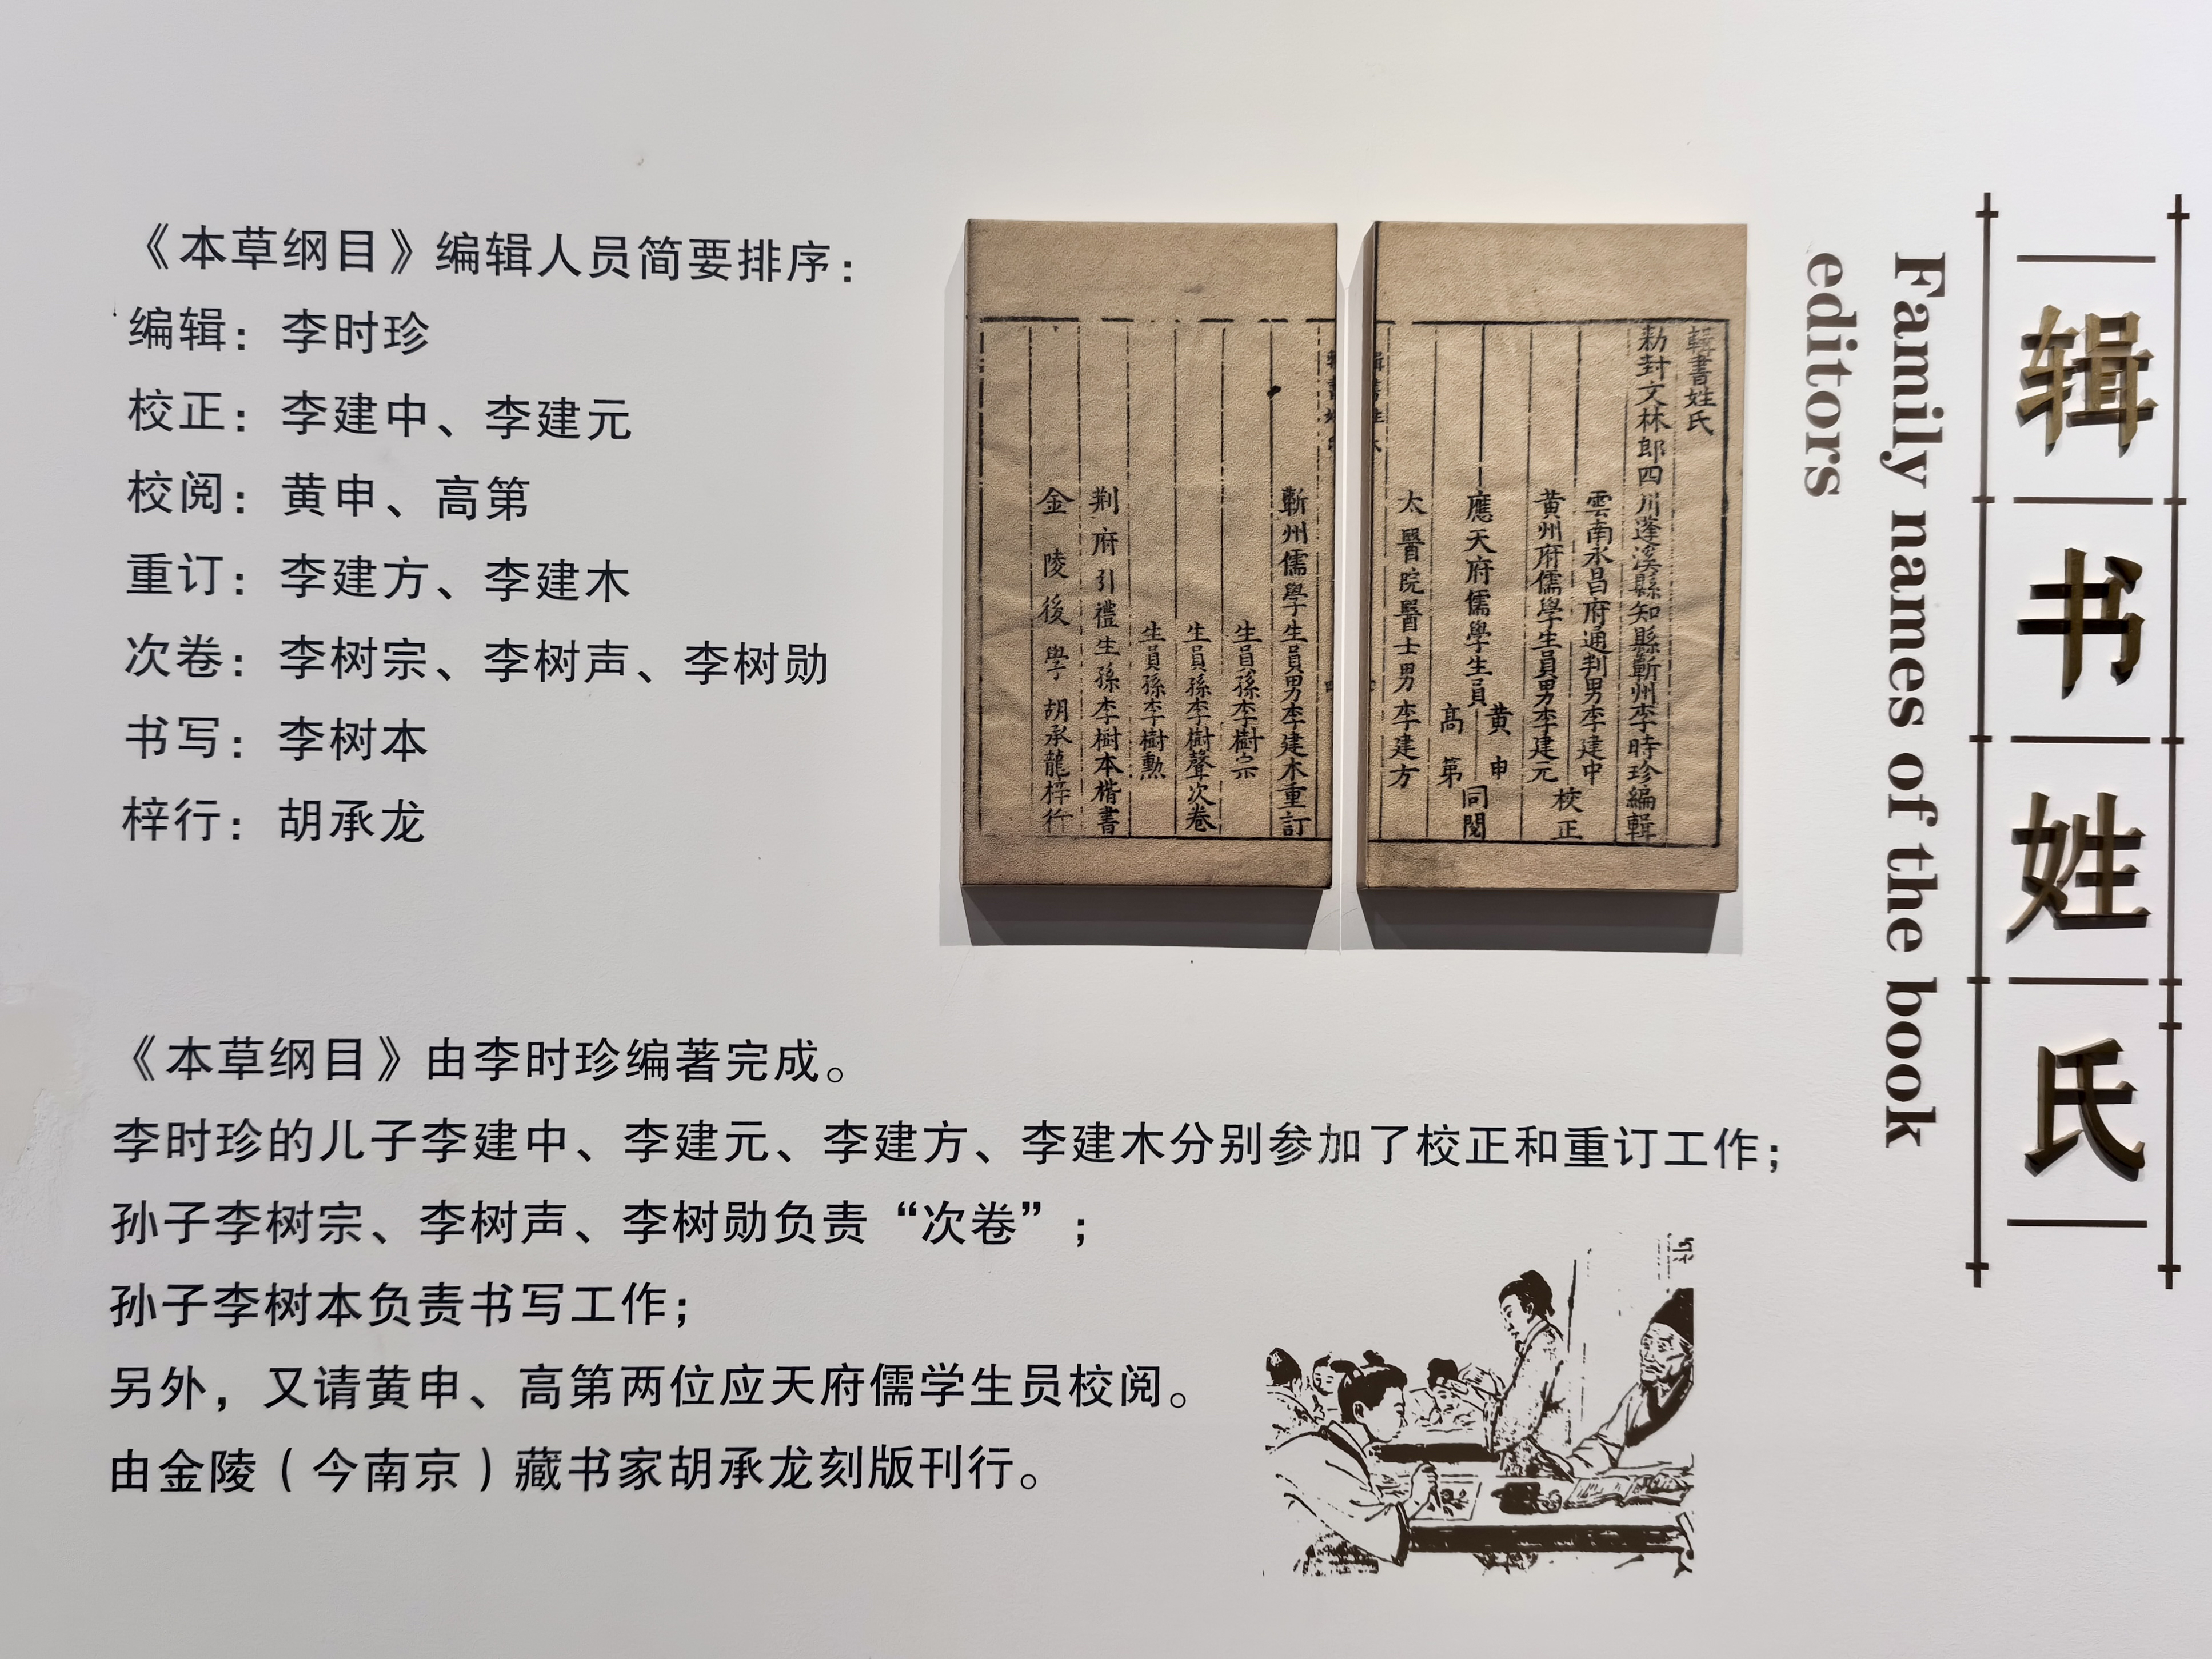 辑书姓氏
Family names of the book
editors
輯書姓氏
勑封文林郎四川蓬溪縣知縣蘄州李時珍編輯
雲南永昌府通判男李建中
黄州府儒學生員男李建元
校正
應天府儒學生員
黄申
高第
同閱
太醫院醫士男李建方
蘄州儒學生員男李建木重訂
生員孫李樹宗
生員孫李樹聲次卷
生員孫李樹勳
荆府引禮生孫李樹本楷書
金陵後學胡承龍梓行
《本草纲目》编辑人员简要排序：
编辑：李时珍
校正：李建中、李建元
校阅：黄申、高第
重订：李建方、李建木
次卷：李树宗、李树声、李树勋
书写：李树本
梓行：胡承龙
《本草纲目》由李时珍编著完成。
李时珍的儿子李建中、李建元、李建方、李建木分别参加了校正和重订工作；
孙子李树宗、李树声、李树勋负责“次卷”；
孙子李树本负责书写工作；
另外，又请黄申、高第两位应天府儒学生员校阅。
由金陵（今南京）藏书家胡承龙刻版刊行。